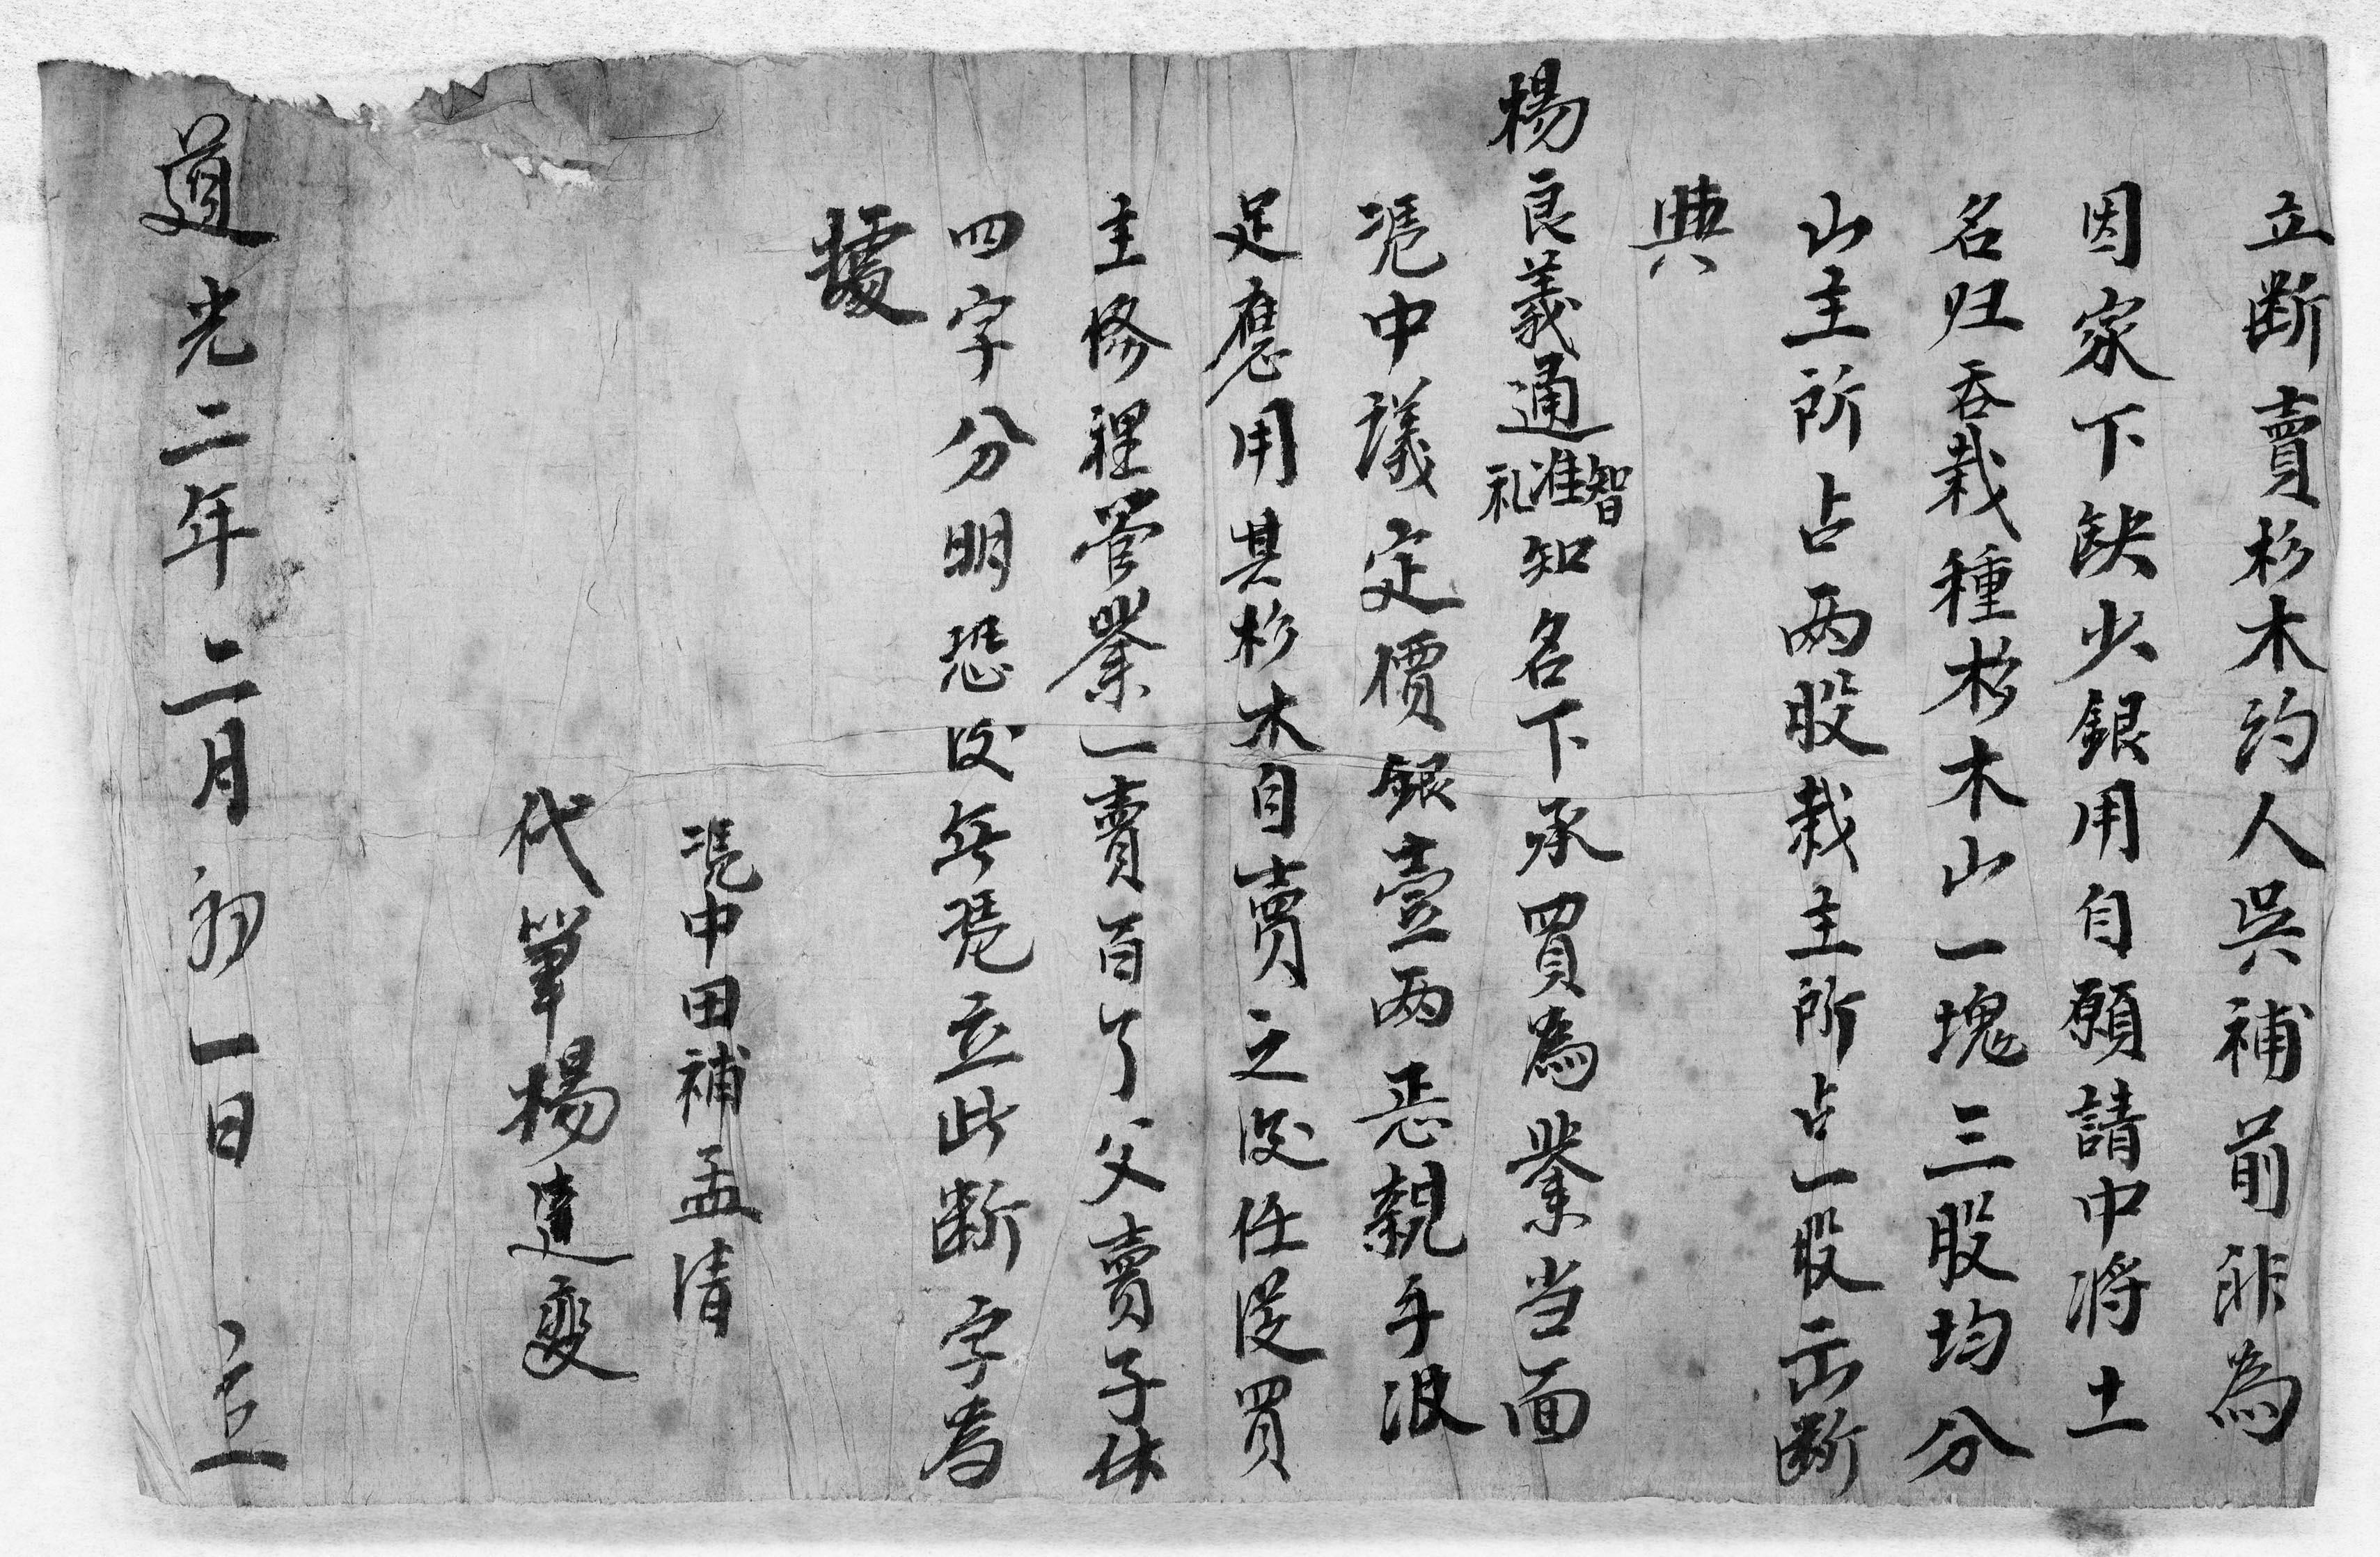 立断賣杉木约人吳補前非為
因家下缺少銀用自願請中將土
名归吞栽種杉木山一塊三股均分
山主所占两股栽主所占一股出断
典
楊良義通智准礼知名下承買為業当面
凴中議定價銀壹两悉親手收
足應用其杉木自賣之後任從買
主修裡管業一賣百了父賣子休
四字分明恐後無凴立此断字為
據
凴中田補孟清
代筆楊進变
道光二年二月初一日 立